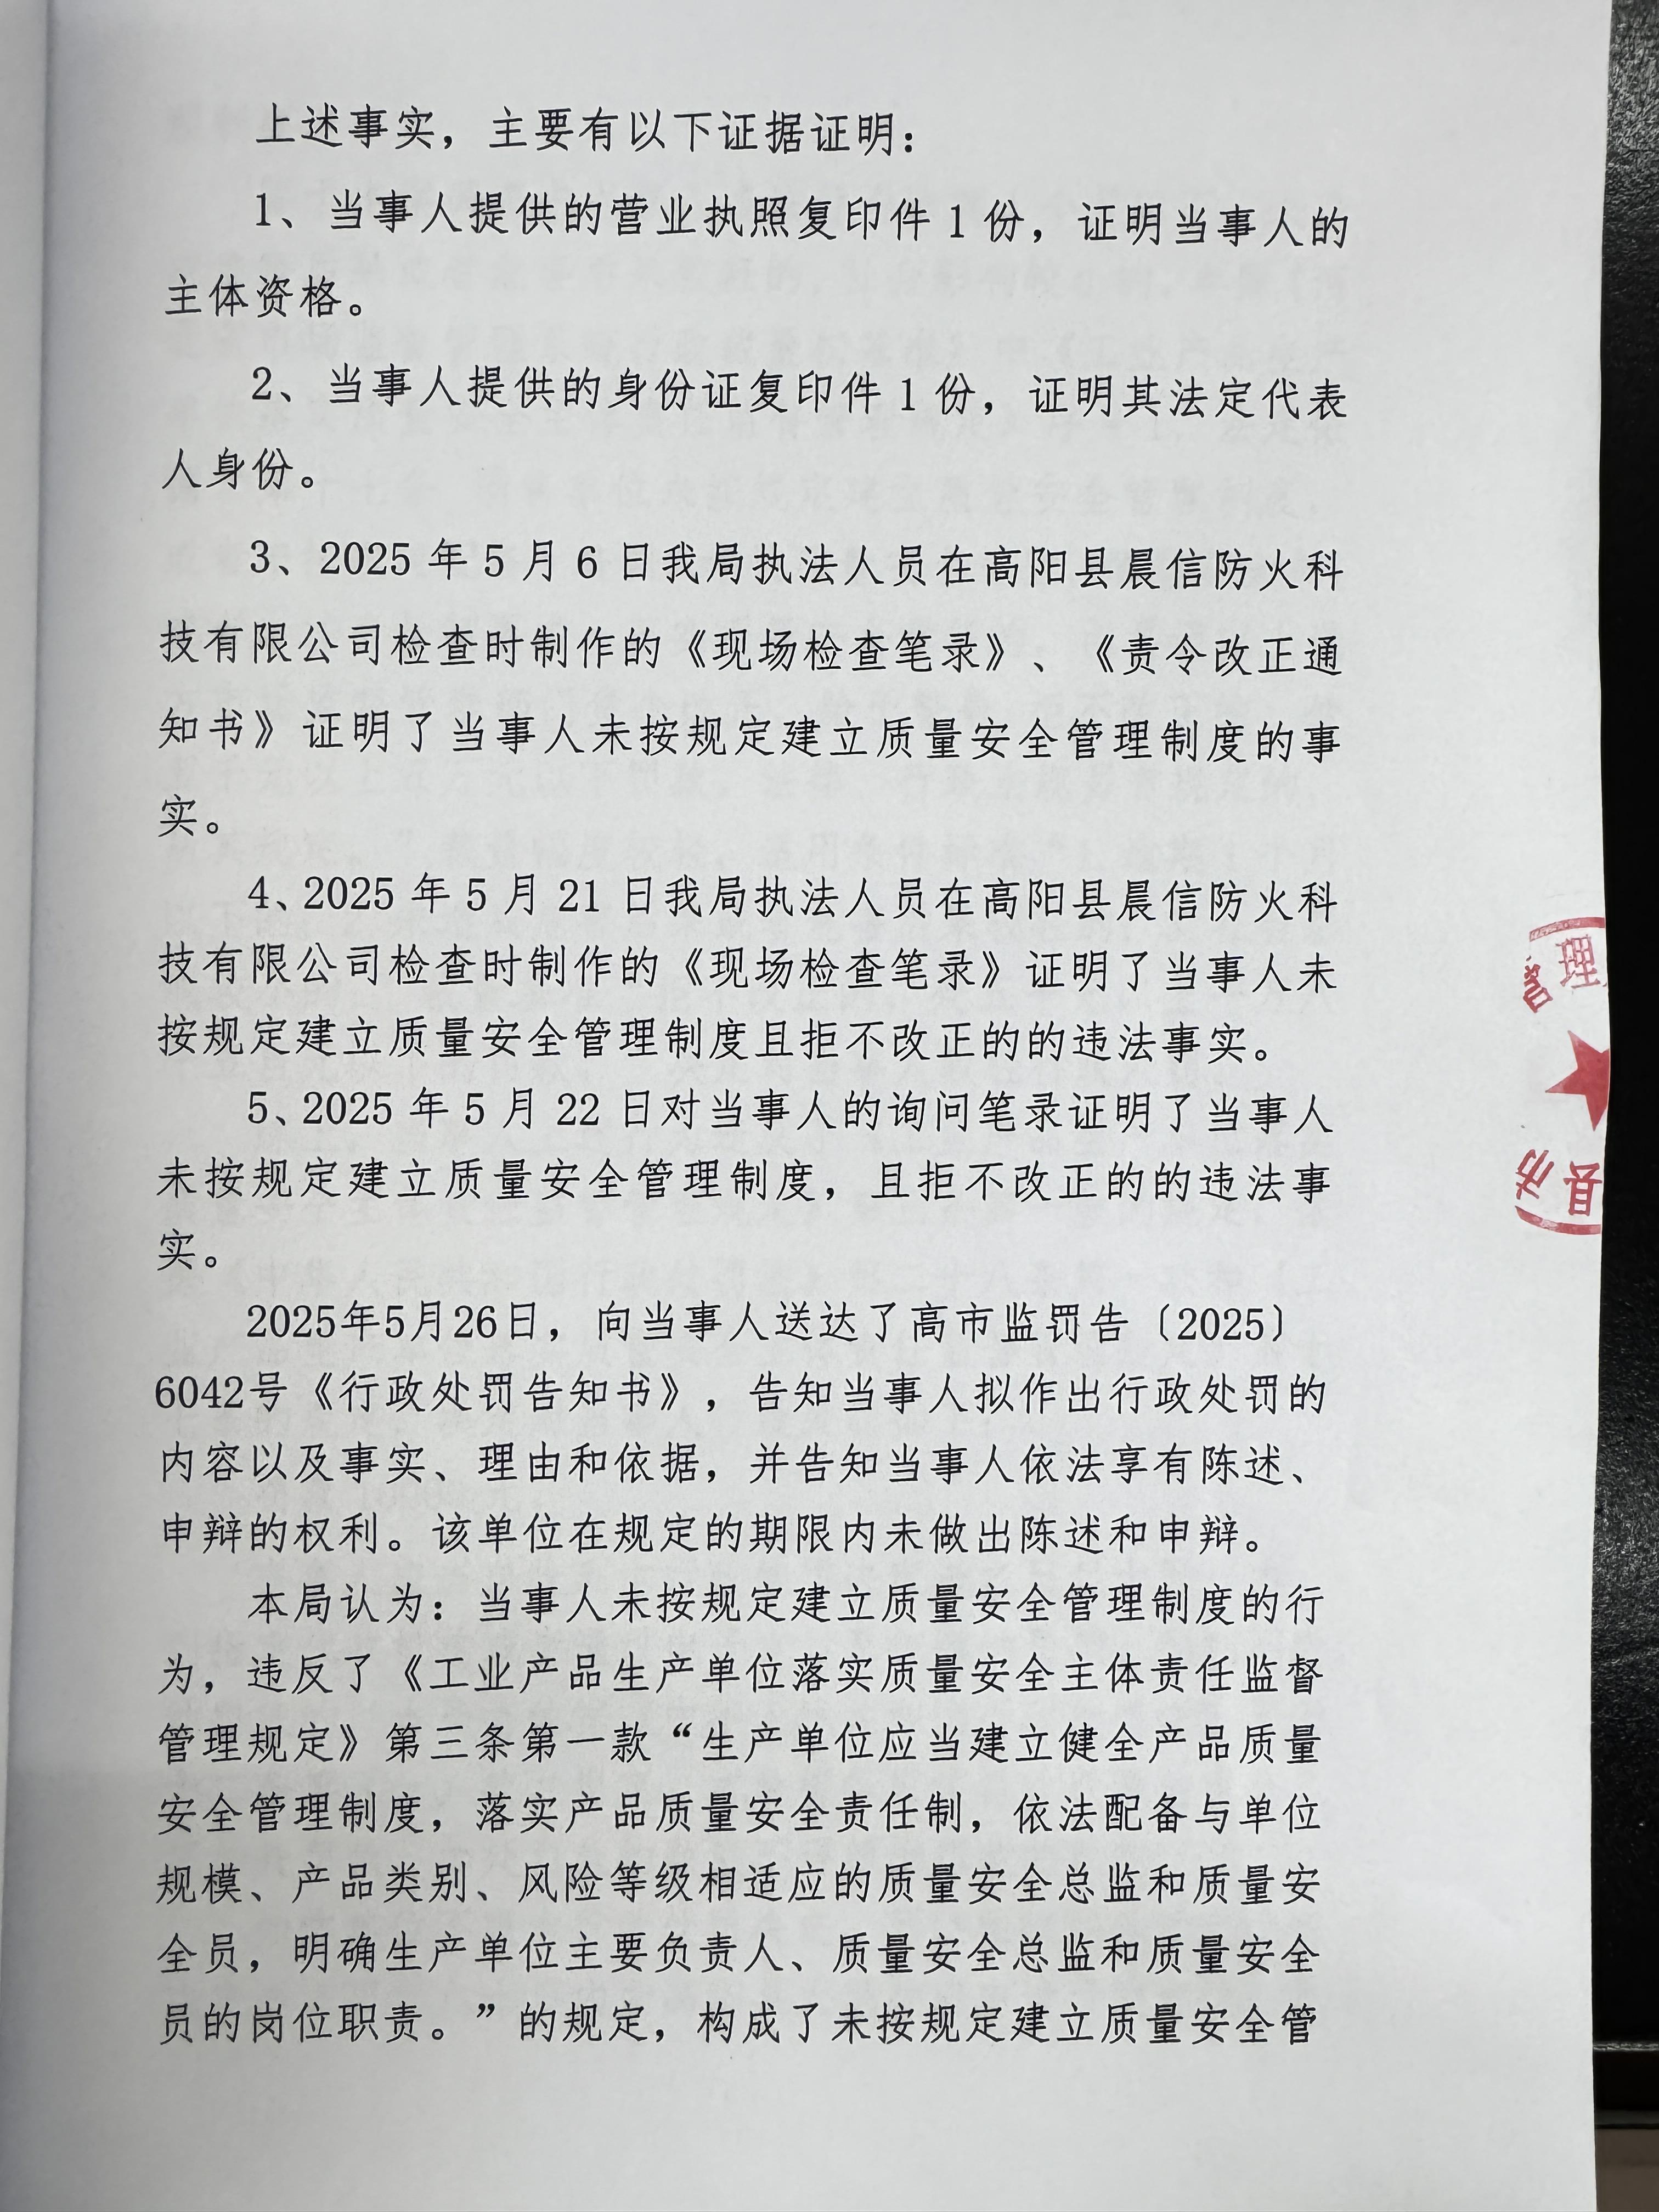 上述事实，主要有以下证据证明：
1、当事人提供的营业执照复印件 1 份，证明当事人的
主体资格。
2、当事人提供的身份证复印件 1 份，证明其法定代表
人身份。
3、2025 年 5 月 6 日我局执法人员在高阳县晨信防火科
技有限公司检查时制作的《现场检查笔录》、《责令改正通
知书》证明了当事人未按规定建立质量安全管理制度的事
实。
4、2025 年 5 月 21 日我局执法人员在高阳县晨信防火科
技有限公司检查时制作的《现场检查笔录》证明了当事人未
按规定建立质量安全管理制度且拒不改正的的违法事实。
5、2025 年 5 月 22 日对当事人的询问笔录证明了当事人
未按规定建立质量安全管理制度，且拒不改正的的违法事
实。
2025年5月26日，向当事人送达了高市监罚告〔2025〕
6042号《行政处罚告知书》，告知当事人拟作出行政处罚的
内容以及事实、理由和依据，并告知当事人依法享有陈述、
申辩的权利。该单位在规定的期限内未做出陈述和申辩。
本局认为：当事人未按规定建立质量安全管理制度的行
为，违反了《工业产品生产单位落实质量安全主体责任监督
管理规定》第三条第一款“生产单位应当建立健全产品质量
安全管理制度，落实产品质量安全责任制，依法配备与单位
规模、产品类别、风险等级相适应的质量安全总监和质量安
全员，明确生产单位主要负责人、质量安全总监和质量安全
员的岗位职责。”的规定，构成了未按规定建立质量安全管
管理
市县